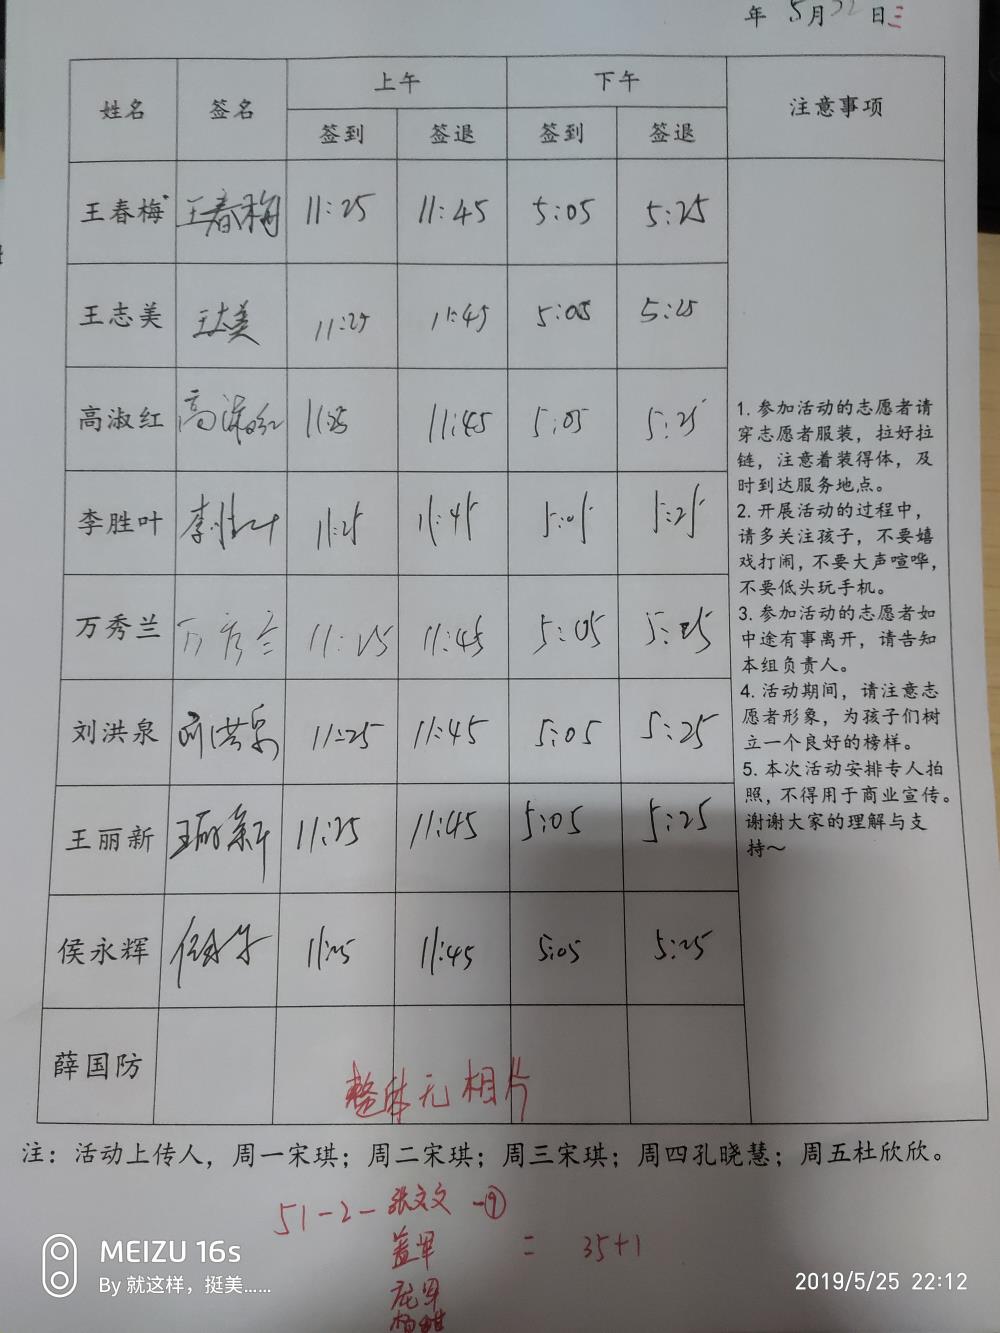 年 5月22日三
姓名 签名 上午 下午 注意事项
签到 签退 签到 签退
王春梅 王春梅 11:25 11:45 5:05 5:25
王志美 王志美 11:25 11:45 5:05 5:25
高淑红 高淑红 11:25 11:45 5:05 5:25
李胜叶 李胜叶 11:25 11:45 5:05 5:25
万秀兰 万秀兰 11:25 11:45 5:05 5:25
刘洪泉 刘洪泉 11:25 11:45 5:05 5:25
王丽新 王丽新 11:25 11:45 5:05 5:25
侯永辉 11:25 11:45 5:05 5:25
薛国防
整体无相片
1. 参加活动的志愿者请
穿志愿者服装，拉好拉
链，注意着装得体，及
时到达服务地点。
2. 开展活动的过程中，
请多关注孩子，不要嬉
戏打闹，不要大声喧哗，
不要低头玩手机。
3. 参加活动的志愿者如
中途有事离开，请告知
本组负责人。
4. 活动期间，请注意志
愿者形象，为孩子们树
立一个良好的榜样。
5. 本次活动安排专人拍
照，不得用于商业宣传。
谢谢大家的理解与支
持～
注：活动上传人，周一宋琪；周二宋琪；周三宋琪；周四孔晓慧；周五杜欣欣。
51-2-张文文 -⑨
= 35+1
MEIZU 16s
By 就这样，挺美......
2019/5/25 22:12